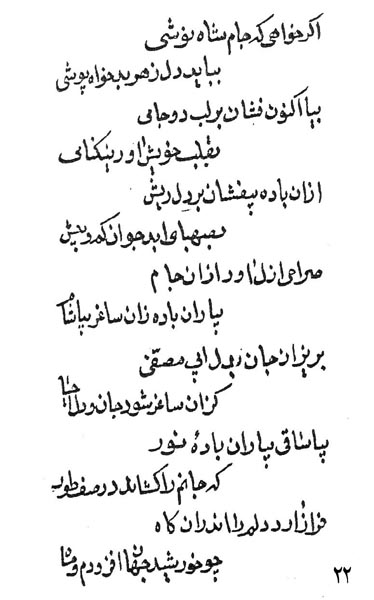 اکر خواهی که جام شاه نوشی
بباید دل زهر بدخواه پوشی
بیا اکنون فشان بر لب دو جامی
بقلب خویش اور نیکنامی
ازان باده بیفشان بر دل ریش
بصهبا اید جوان کم و بیش
صراحی ازل اور ازان جام
بیاران باده زان ساغر بیاشام
بریز از جان بدل ابی مصفی
کزان ساغر شود جان و دل احیا
بیا ساقی بیاران بادهٔ نور
که جانم را کشاند در صف طور
فراز ارد دلم را اندران کاه
چو خورشید جهان افزودم و ماه
۲۲